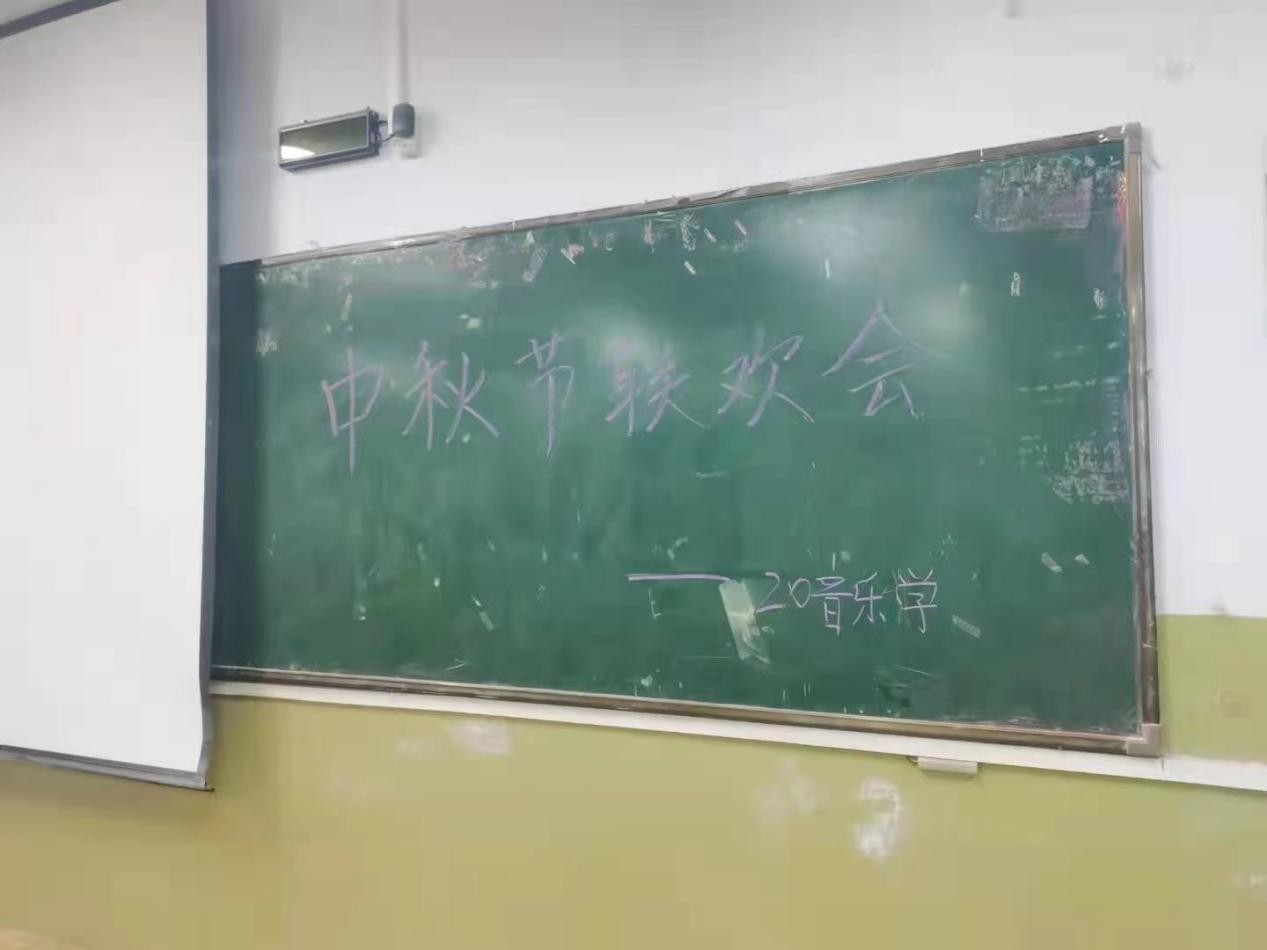 中秋节联欢会
—20音乐学